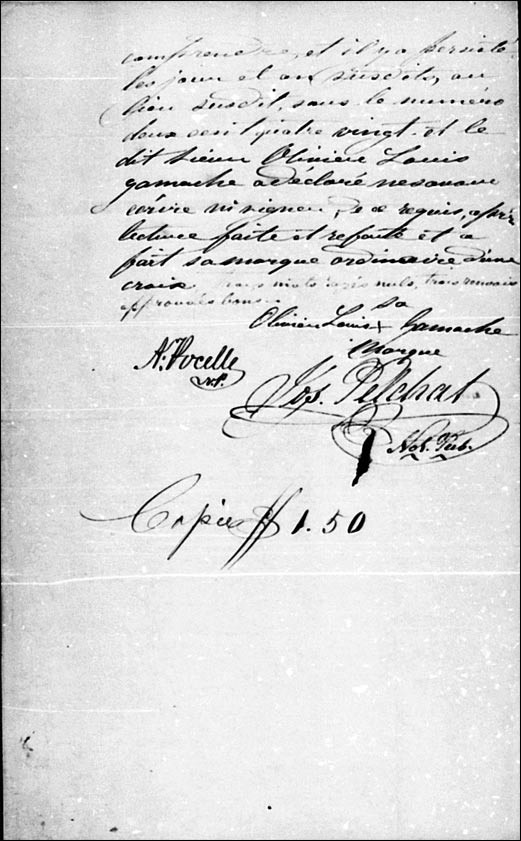 comprendre, et il y a persisté
les jour et an susdits, au
lieu susdit, sous le numéro
deux cent quatre vingt. et le
dit sieur Olivier Louis
gamache a déclaré ne savoir
écrire ni signer, de ce requis, aprè
lecture faite et refaite et a
fait sa marque ordinaire d'une
croix, trois mots rayés nuls, trois renvois
approuvés bons.
sa
Olivier Louis + Gamache
Marque
A. Vocelle
N.P.
Jos. Pelchat
Not. Pub.
Copie $1.50